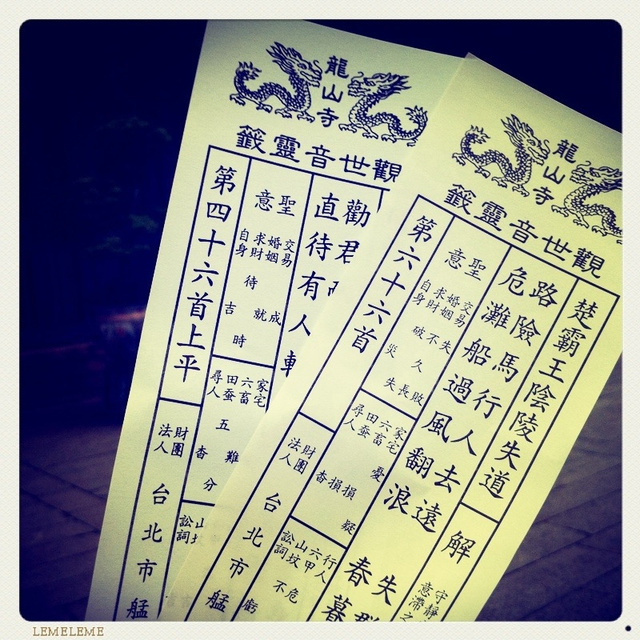 龍山寺
觀世音靈籤
勸君
直待有人
聖意
交易 成
婚姻 就
求財 待時
自身 吉
家宅
六畜 難
田蚕 五
尋人 分
山坟
訟詞
第四十六首上平
財團法人
台北市艋
龍山寺
觀世音靈籤
楚霸王陰陵失道
解
守靜
意滯之
路險馬行人去遠
危灘船過風翻浪
失群
春暮
聖意
交易 失敗
婚姻 不長
求財 破久
自身 災失
家宅 疑
六畜 損
田蚕 損
尋人 杳
行人
六甲 危
山坟 不
訟詞 虧
第六十六首
財團法人
台北市艋
LEMELEME